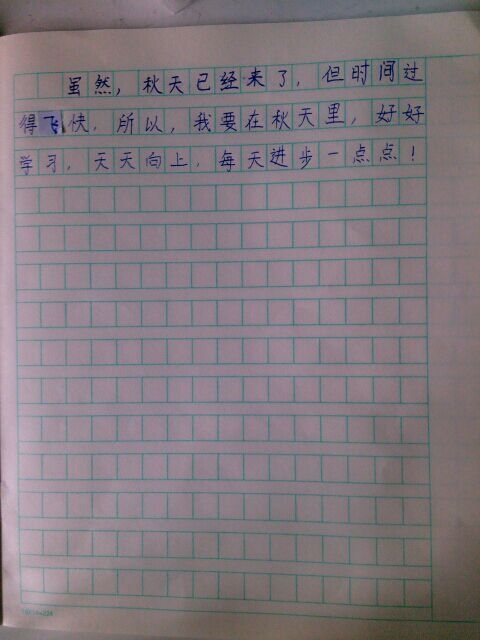 虽然，秋天已经来了，但时间过
得飞快，所以，我要在秋天里，好好
学习，天天向上，每天进步一点点！